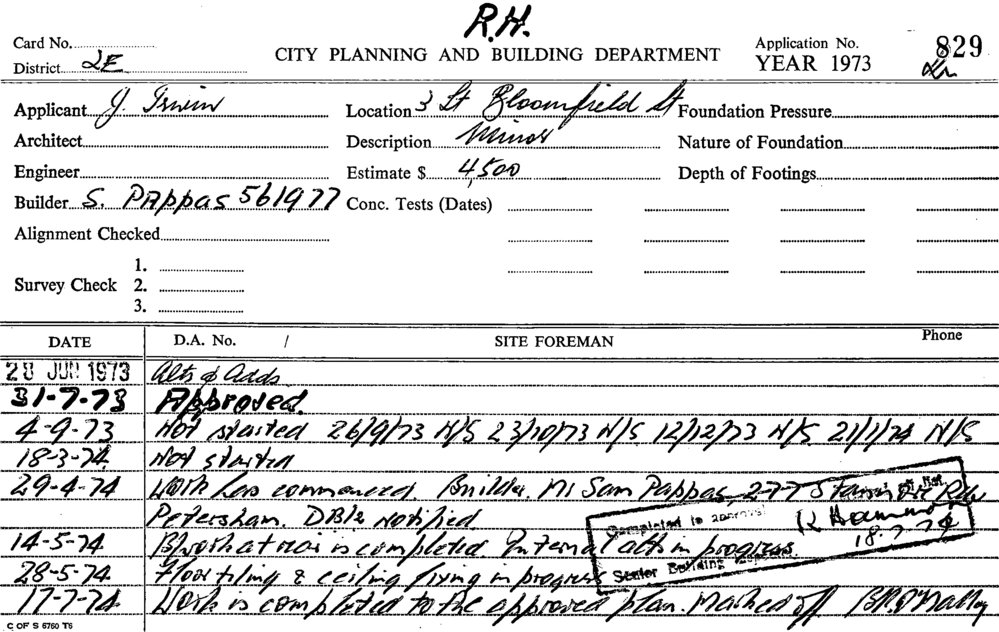 R.H.
Card No.
CITY PLANNING AND BUILDING DEPARTMENT
Application No. 829
District 2E
YEAR 1973
Applicant J. Irwin
Location 3 Lt Bloomfield St
Foundation Pressure
Architect
Description Minor
Nature of Foundation
Engineer
Estimate $ 4,500
Depth of Footings
Builder S. PAppas 561977
Conc. Tests (Dates)
Alignment Checked
Survey Check 1.
2.
3.
DATE D.A. No. / SITE FOREMAN Phone
28 JUN 1973 Alts & Adds
31-7-73 Approved.
4-9-73 Not started 26/9/73 N/S 23/10/73 N/S 12/12/73 N/S 21/1/74 N/S
18-3-74 Not started
29-4-74 Work has commenced. Builder. Mr Sam Pappas, 277 Rd
Petersham. DBIs notified
14-5-74 at rear is completed Internal alts in progress.
28-5-74 Floor tiling & ceiling fixing in progress
17-7-74 Work is completed to the approved plan. Marked off B.R. O'Malley
Completed to approval
18.7.74
Senior Building
C OF S 6760 T6